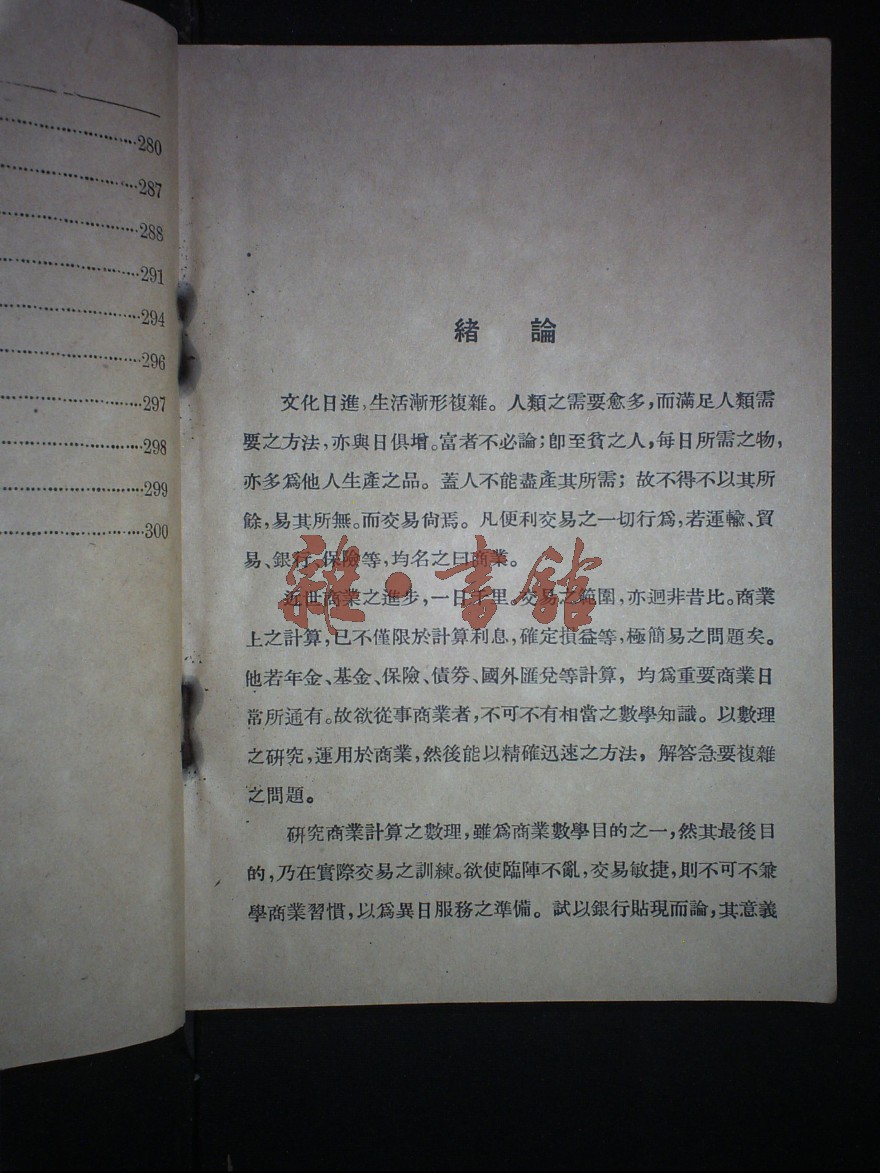 280
287
288
291
294
296
297
298
299
300
緒論
文化日進,生活漸形複雜。人類之需要愈多,而滿足人類需
要之方法,亦與日俱增。富者不必論;卽至貧之人,每日所需之物,
亦多爲他人生產之品。蓋人不能盡產其所需;故不得不以其所
餘,易其所無。而交易尙焉。凡便利交易之一切行爲,若運輸、貿
易、銀行、保險等,均名之曰商業。
近世商業之進步,一日千里,交易之範圍,亦迥非昔比。商業
上之計算,已不僅限於計算利息,確定損益等,極簡易之問題矣。
他若年金、基金、保險、債劵、國外匯兌等計算,均爲重要商業日
常所通有。故欲從事商業者,不可不有相當之數學知識。以數理
之硏究,運用於商業,然後能以精確迅速之方法,解答急要複雜
之問題。
硏究商業計算之數理,雖爲商業數學目的之一,然其最後目
的,乃在實際交易之訓練。欲使臨陣不亂,交易敏捷,則不可不兼
學商業習慣,以爲異日服務之準備。試以銀行貼現而論,其意義
雜·書館